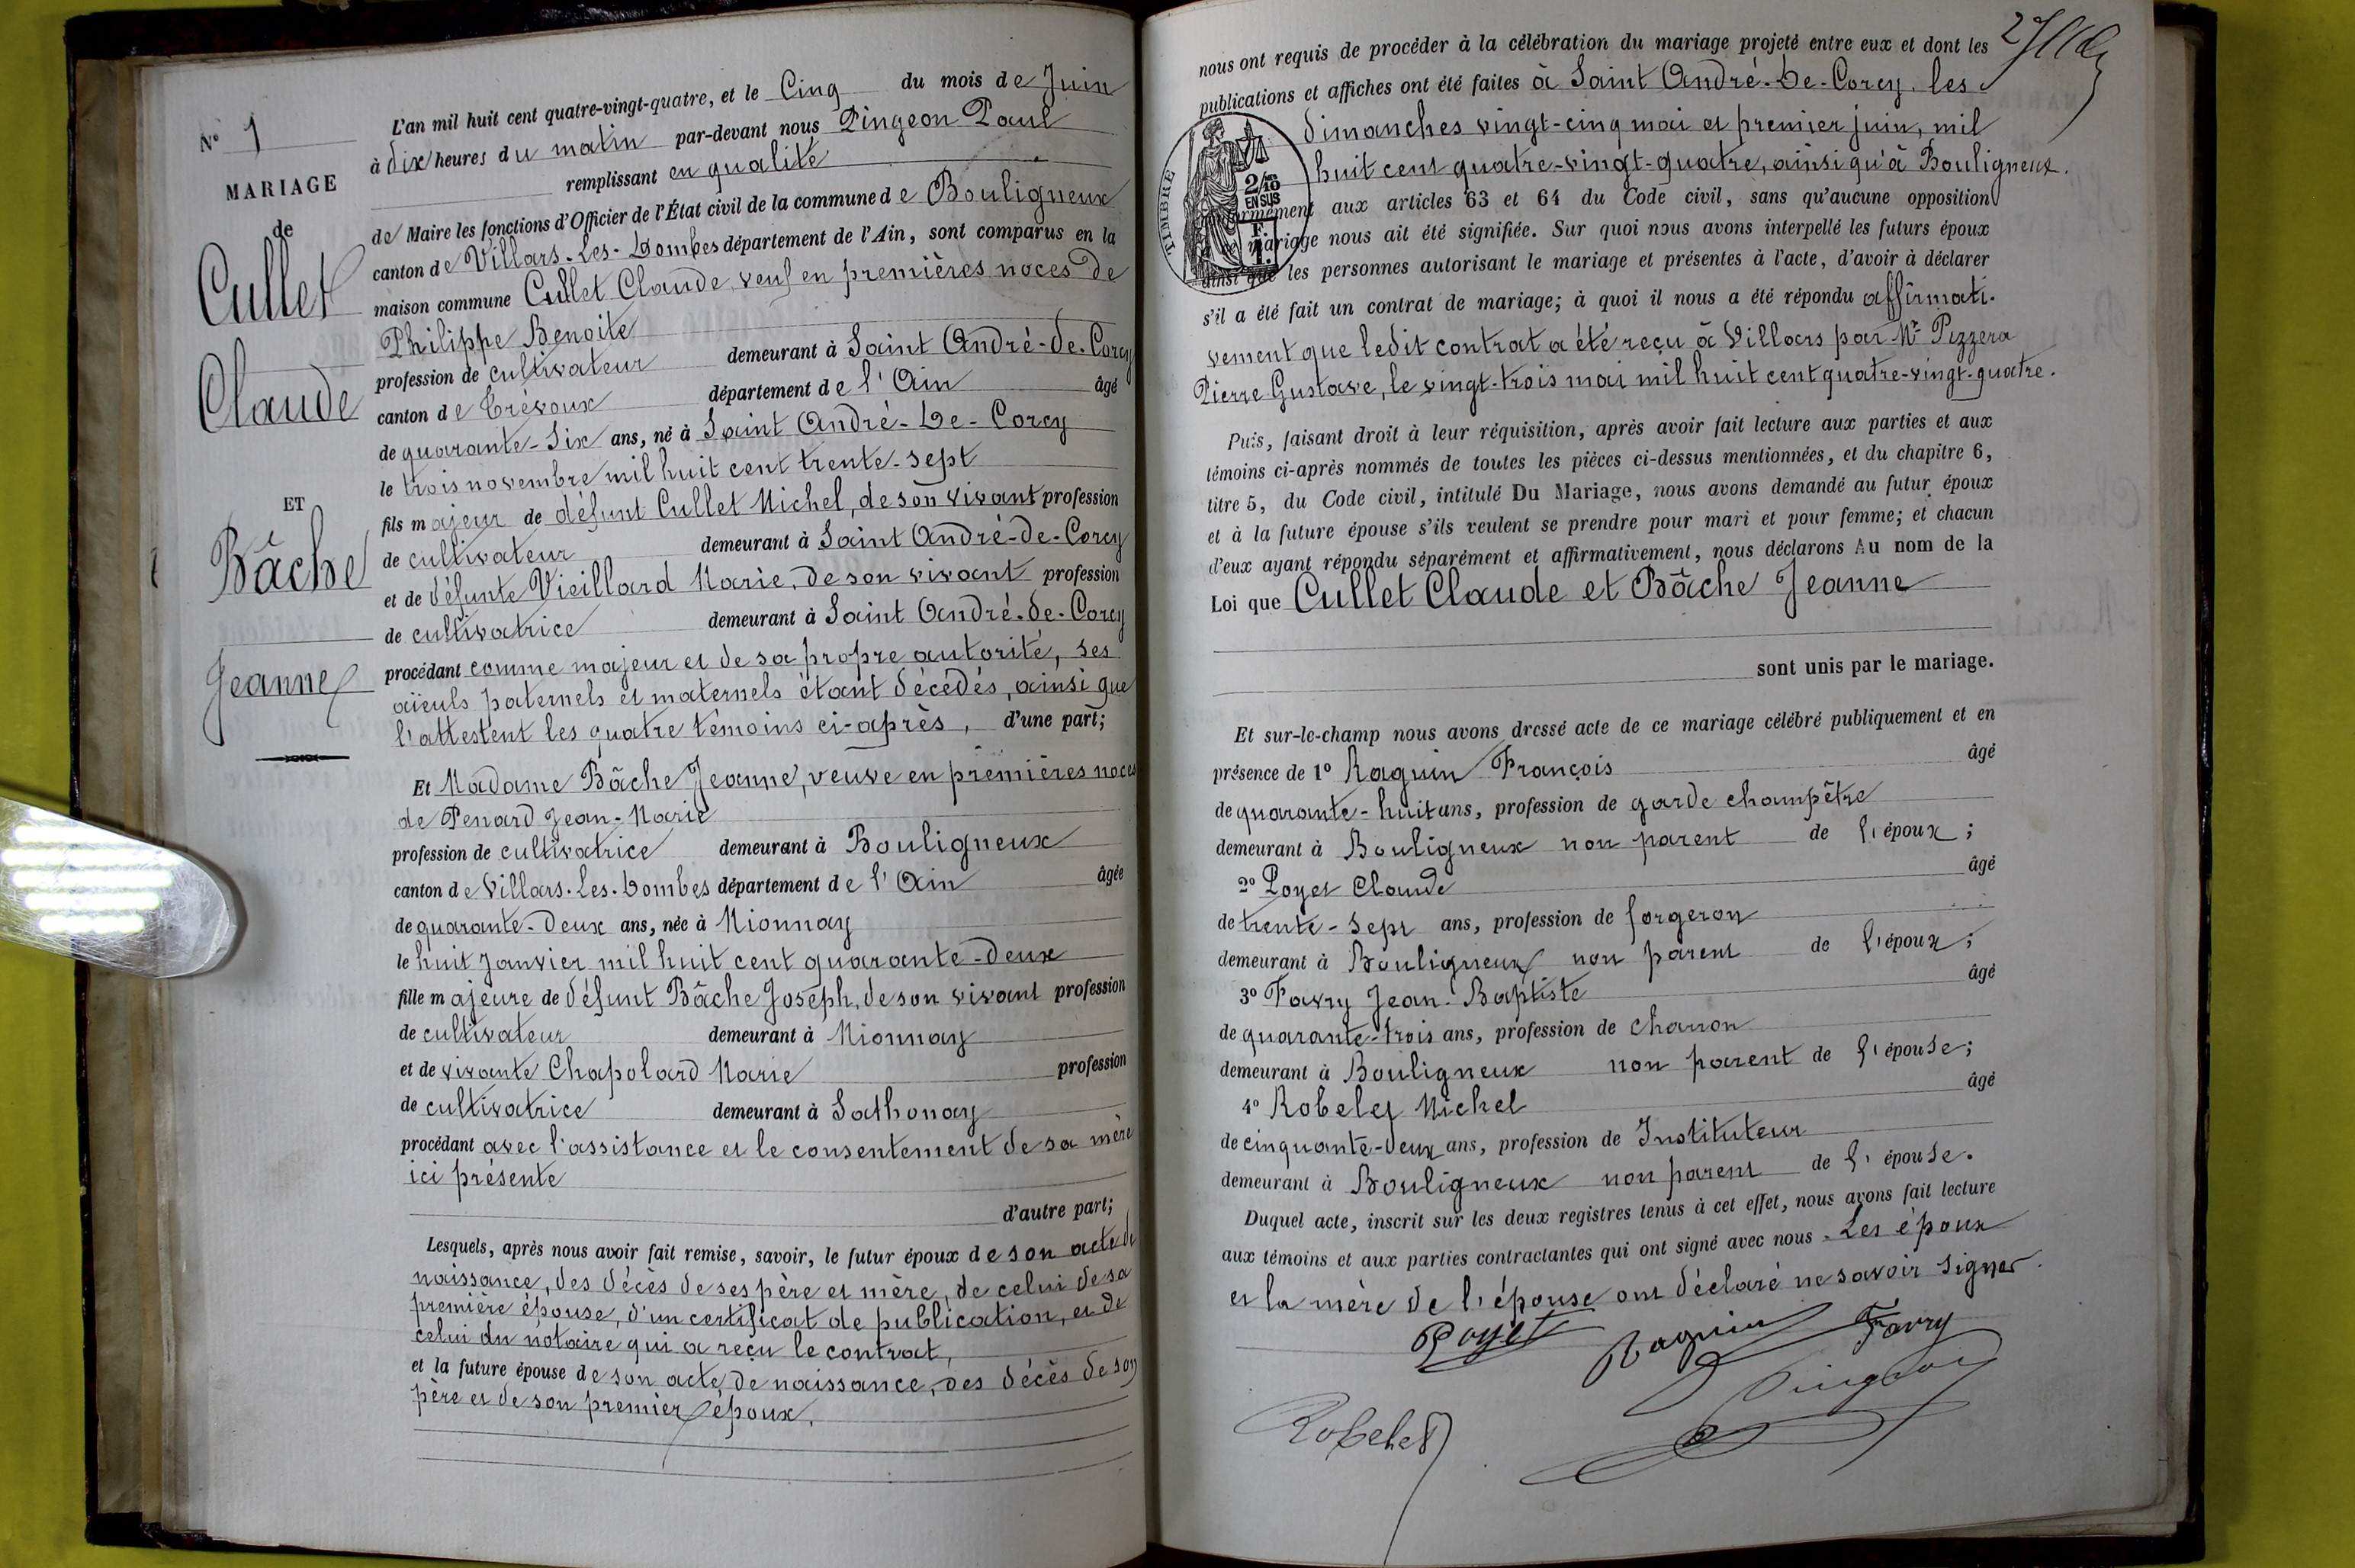 N° 1
MARIAGE
de
Cullet
Claude
ET
Bâche
Jeanne
L'an mil huit cent quatre-vingt-quatre, et le Cinq du mois de Juin
à dix heures du matin par-devant nous Pingeon Paul
remplissant en qualité
de Maire les fonctions d'Officier de l'État civil de la commune de Bouligneux
canton de Villars-les-Dombes département de l'Ain, sont comparus en la
maison commune Cullet Claude, veuf en premières noces de
Philippe Benoite
profession de cultivateur demeurant à Saint André-de-Corcy
canton de Trévoux département de l'Ain âgé
de quarante-six ans, né à Saint André-De-Corcy
le trois novembre mil huit cent trente-sept
fils majeur de défunt Cullet Michel, de son vivant profession
de cultivateur demeurant à Saint André-de-Corcy
et de défunte Vieillard Marie, de son vivant profession
de cultivatrice demeurant à Saint André-de-Corcy
procédant comme majeur et de sa propre autorité, ses
aïeuls paternels et maternels étant décédés, ainsi que
l'attestent les quatre témoins ci-après, d'une part;
Et Madame Bâche Jeanne, veuve en premières noces
de Penard Jean-Marie
profession de cultivatrice demeurant à Bouligneux
canton de Villars-les-Dombes département de l'Ain âgée
de quarante-deux ans, née à Mionnay
le huit Janvier mil huit cent quarante-deux
fille majeure de défunt Bâche Joseph, de son vivant profession
de cultivateur demeurant à Mionnay
et de vivante Chapolard Marie profession
de cultivatrice demeurant à Sathonay
procédant avec l'assistance et le consentement de sa mère
ici présente
d'autre part;
Lesquels, après nous avoir fait remise, savoir, le futur époux de son acte de
naissance, des décès de ses père et mère, de celui de sa
première épouse, d'un certificat de publication, et de
celui du notaire qui a reçu le contrat,
et la future épouse de son acte de naissance, des décès de son
père et de son premier époux.
nous ont requis de procéder à la célébration du mariage projeté entre eux et dont les
publications et affiches ont été faites à Saint André-De-Corcy, les
dimanches vingt-cinq mai et premier juin, mil
huit cent quatre-vingt-quatre, ainsi qu'à Bouligneux.
TIMBRE
2/10
EN SUS
F.
1.
aux articles 63 et 64 du Code civil, sans qu'aucune opposition
mariage nous ait été signifiée. Sur quoi nous avons interpellé les futurs époux
ainsi que les personnes autorisant le mariage et présentes à l'acte, d'avoir à déclarer
s'il a été fait un contrat de mariage; à quoi il nous a été répondu affirmati-
vement que ledit contrat a été reçu à Villars par Mr Pezzera
Pierre Gustave, le vingt-trois mai mil huit cent quatre-vingt-quatre.
Puis, faisant droit à leur réquisition, après avoir fait lecture aux parties et aux
témoins ci-après nommés de toutes les pièces ci-dessus mentionnées, et du chapitre 6,
titre 5, du Code civil, intitulé Du Mariage, nous avons demandé au futur époux
et à la future épouse s'ils veulent se prendre pour mari et pour femme; et chacun
d'eux ayant répondu séparément et affirmativement, nous déclarons Au nom de la
Loi que Cullet Claude et Bâche Jeanne
sont unis par le mariage.
Et sur-le-champ nous avons dressé acte de ce mariage célébré publiquement et en
présence de 1° Raguin François âgé
de quarante-huit ans, profession de garde champêtre
demeurant à Bouligneux non parent de l'époux;
2° Poyet Claude âgé
de trente-sept ans, profession de forgeron
demeurant à Bouligneux non parent de l'époux;
3° Favry Jean-Baptiste âgé
de quarante-trois ans, profession de charron
demeurant à Bouligneux non parent de l'épouse;
4° Robelet Michel âgé
de cinquante-deux ans, profession de Instituteur
demeurant à Bouligneux non parent de l'épouse.
Duquel acte, inscrit sur les deux registres tenus à cet effet, nous avons fait lecture
aux témoins et aux parties contractantes qui ont signé avec nous. Les époux
et la mère de l'épouse ont déclaré ne savoir signer.
Poyet Raguin Favry
Pingeon
Robelet